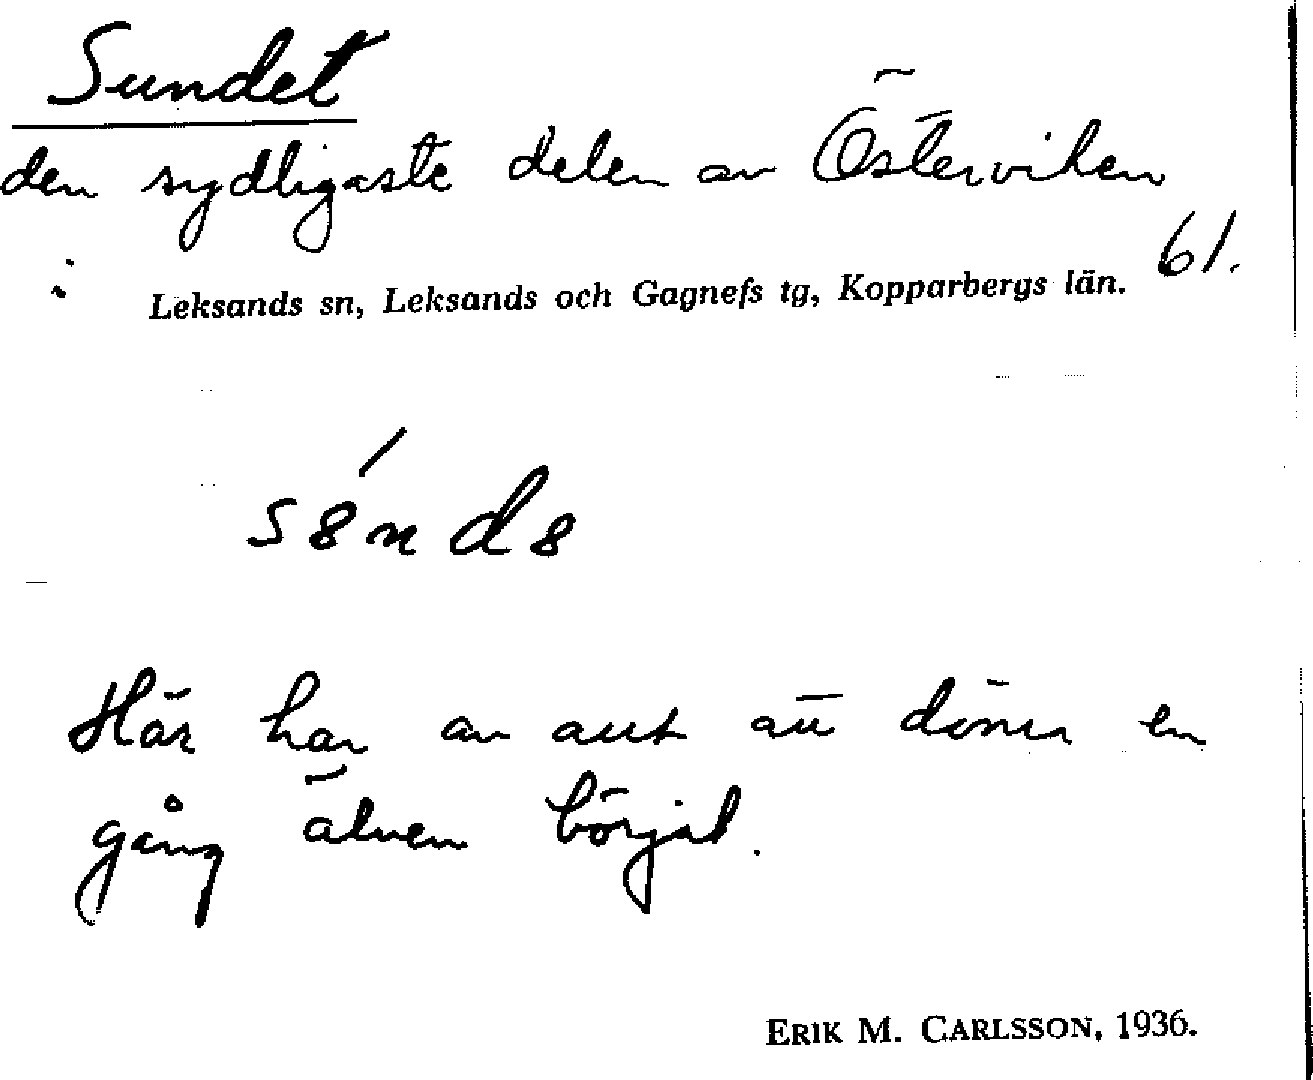 Sundet
den sydligaste delen av Österviken
i Leksands sn, Leksands och Gagnefs tg, Kopparbergs län. 61.
s8́nd8
Här har av allt att döma en
gång älven börjat.
ERIK M. CARLSSON, 1936.